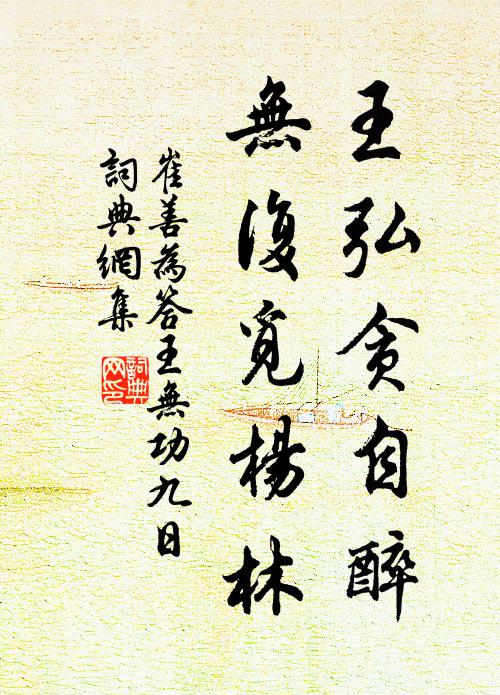 王弘貪自醉
無復覓楊林
崔善為答王無功九日
詞典網集
詞典網印